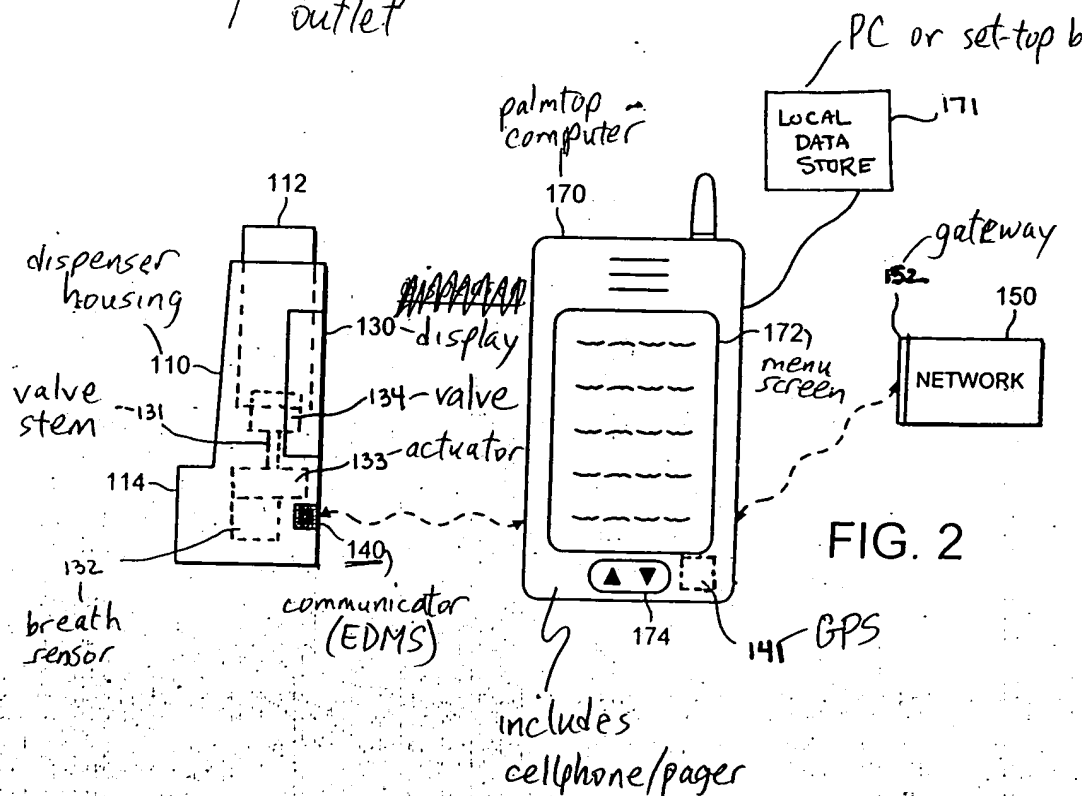 outlet
PC or set-top b
palmtop
computer
LOCAL
DATA
STORE
171
170
112
gateway
152
150
dispenser
housing
130 display
110
172
menu
screen
NETWORK
valve
stem
131
134 - valve
133 - actuator
114
FIG. 2
140
132
breath
sensor
communicator
(EDMS)
174
141 GPS
includes
cellphone/pager